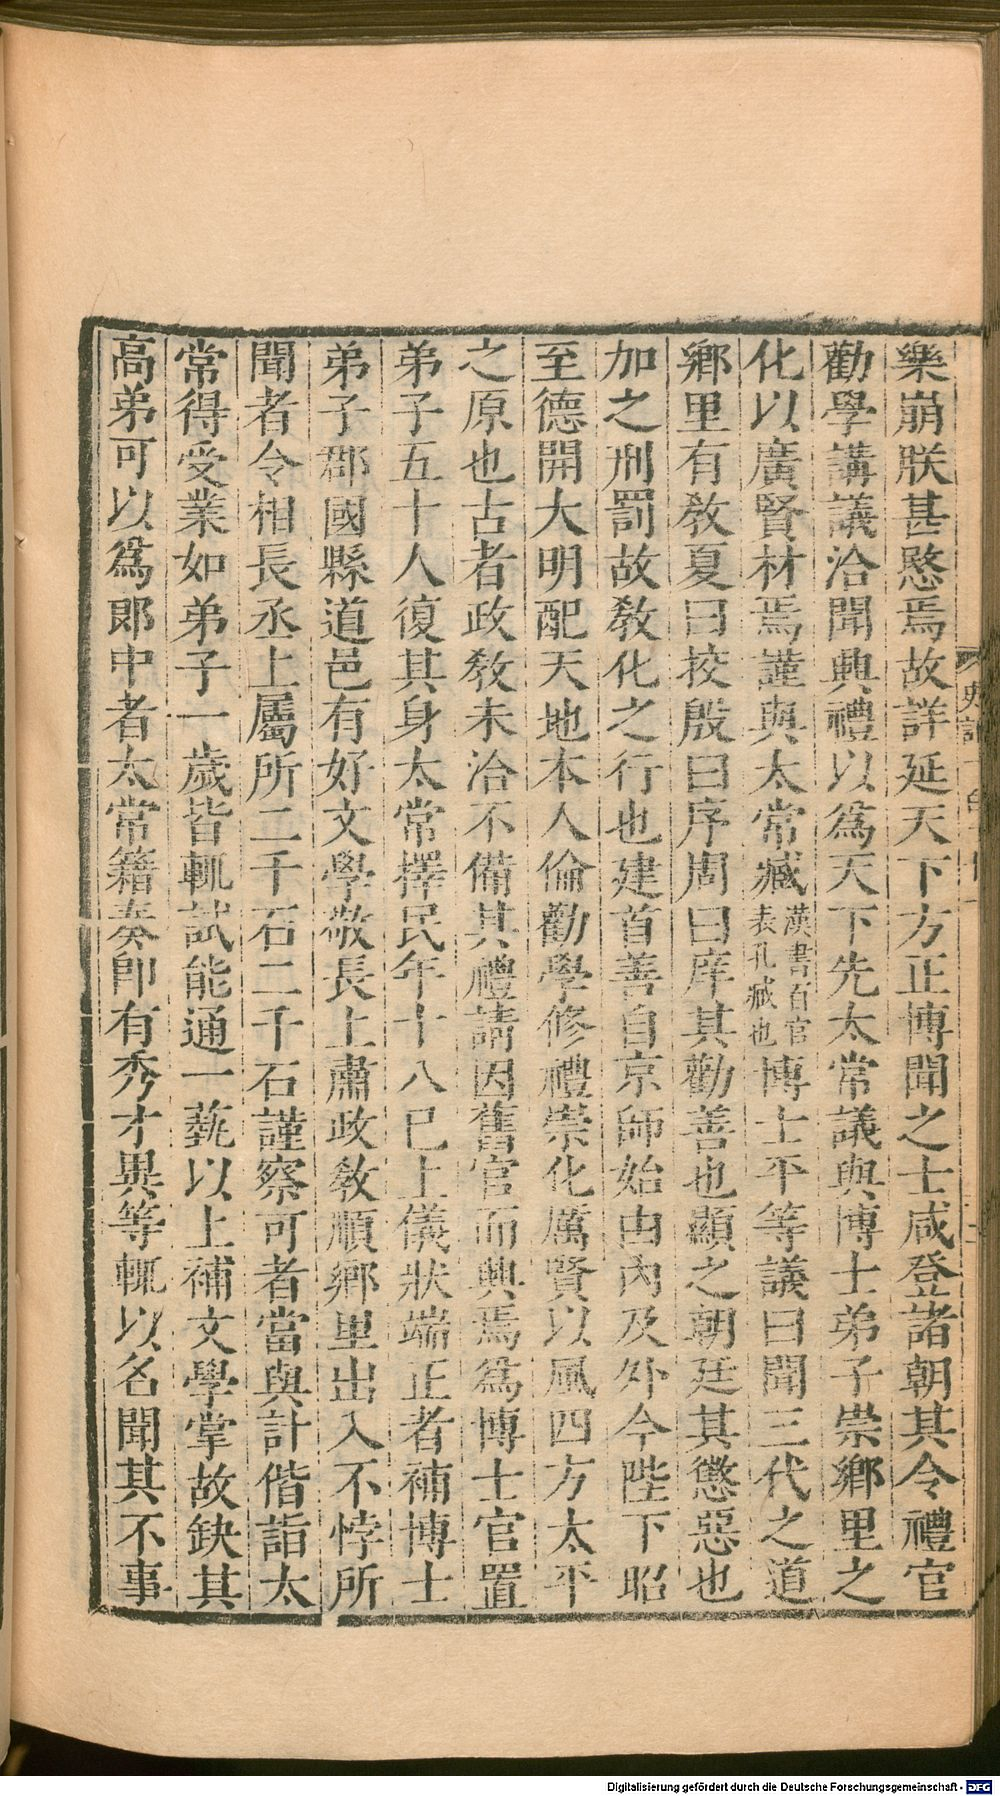 樂崩朕甚愍焉故詳延天下方正博聞之士咸登諸朝其令禮官
勸學講議洽聞興禮以爲天下先太常議與博士弟子崇鄉里之
化以廣賢材焉謹與太常臧漢書百官表孔臧也博士平等議曰聞三代之道
鄉里有敎夏曰挍殷曰序周曰庠其勸善也顯之朝廷其懲惡也
加之刑罰故敎化之行也建首善自京師始由內及外今陛下昭
至德開大明配天地本人倫勸學修禮崇化厲賢以風四方太平
之原也古者政敎未洽不備其禮請因舊官而興焉爲博士官置
弟子五十人復其身太常擇民年十八已上儀狀端正者補博士
弟子郡國縣道邑有好文學敬長上肅政敎順鄉里出入不悖所
聞者令相長丞上屬所二千石二千石謹察可者當與計偕詣太
常得受業如弟子一歲皆輒試能通一藝以上補文學掌故缺其
高弟可以爲郎中者太常籍奏即有秀才異等輒以名聞其不事
Digitalisierung gefördert durch die Deutsche Forschungsgemeinschaft - DFG